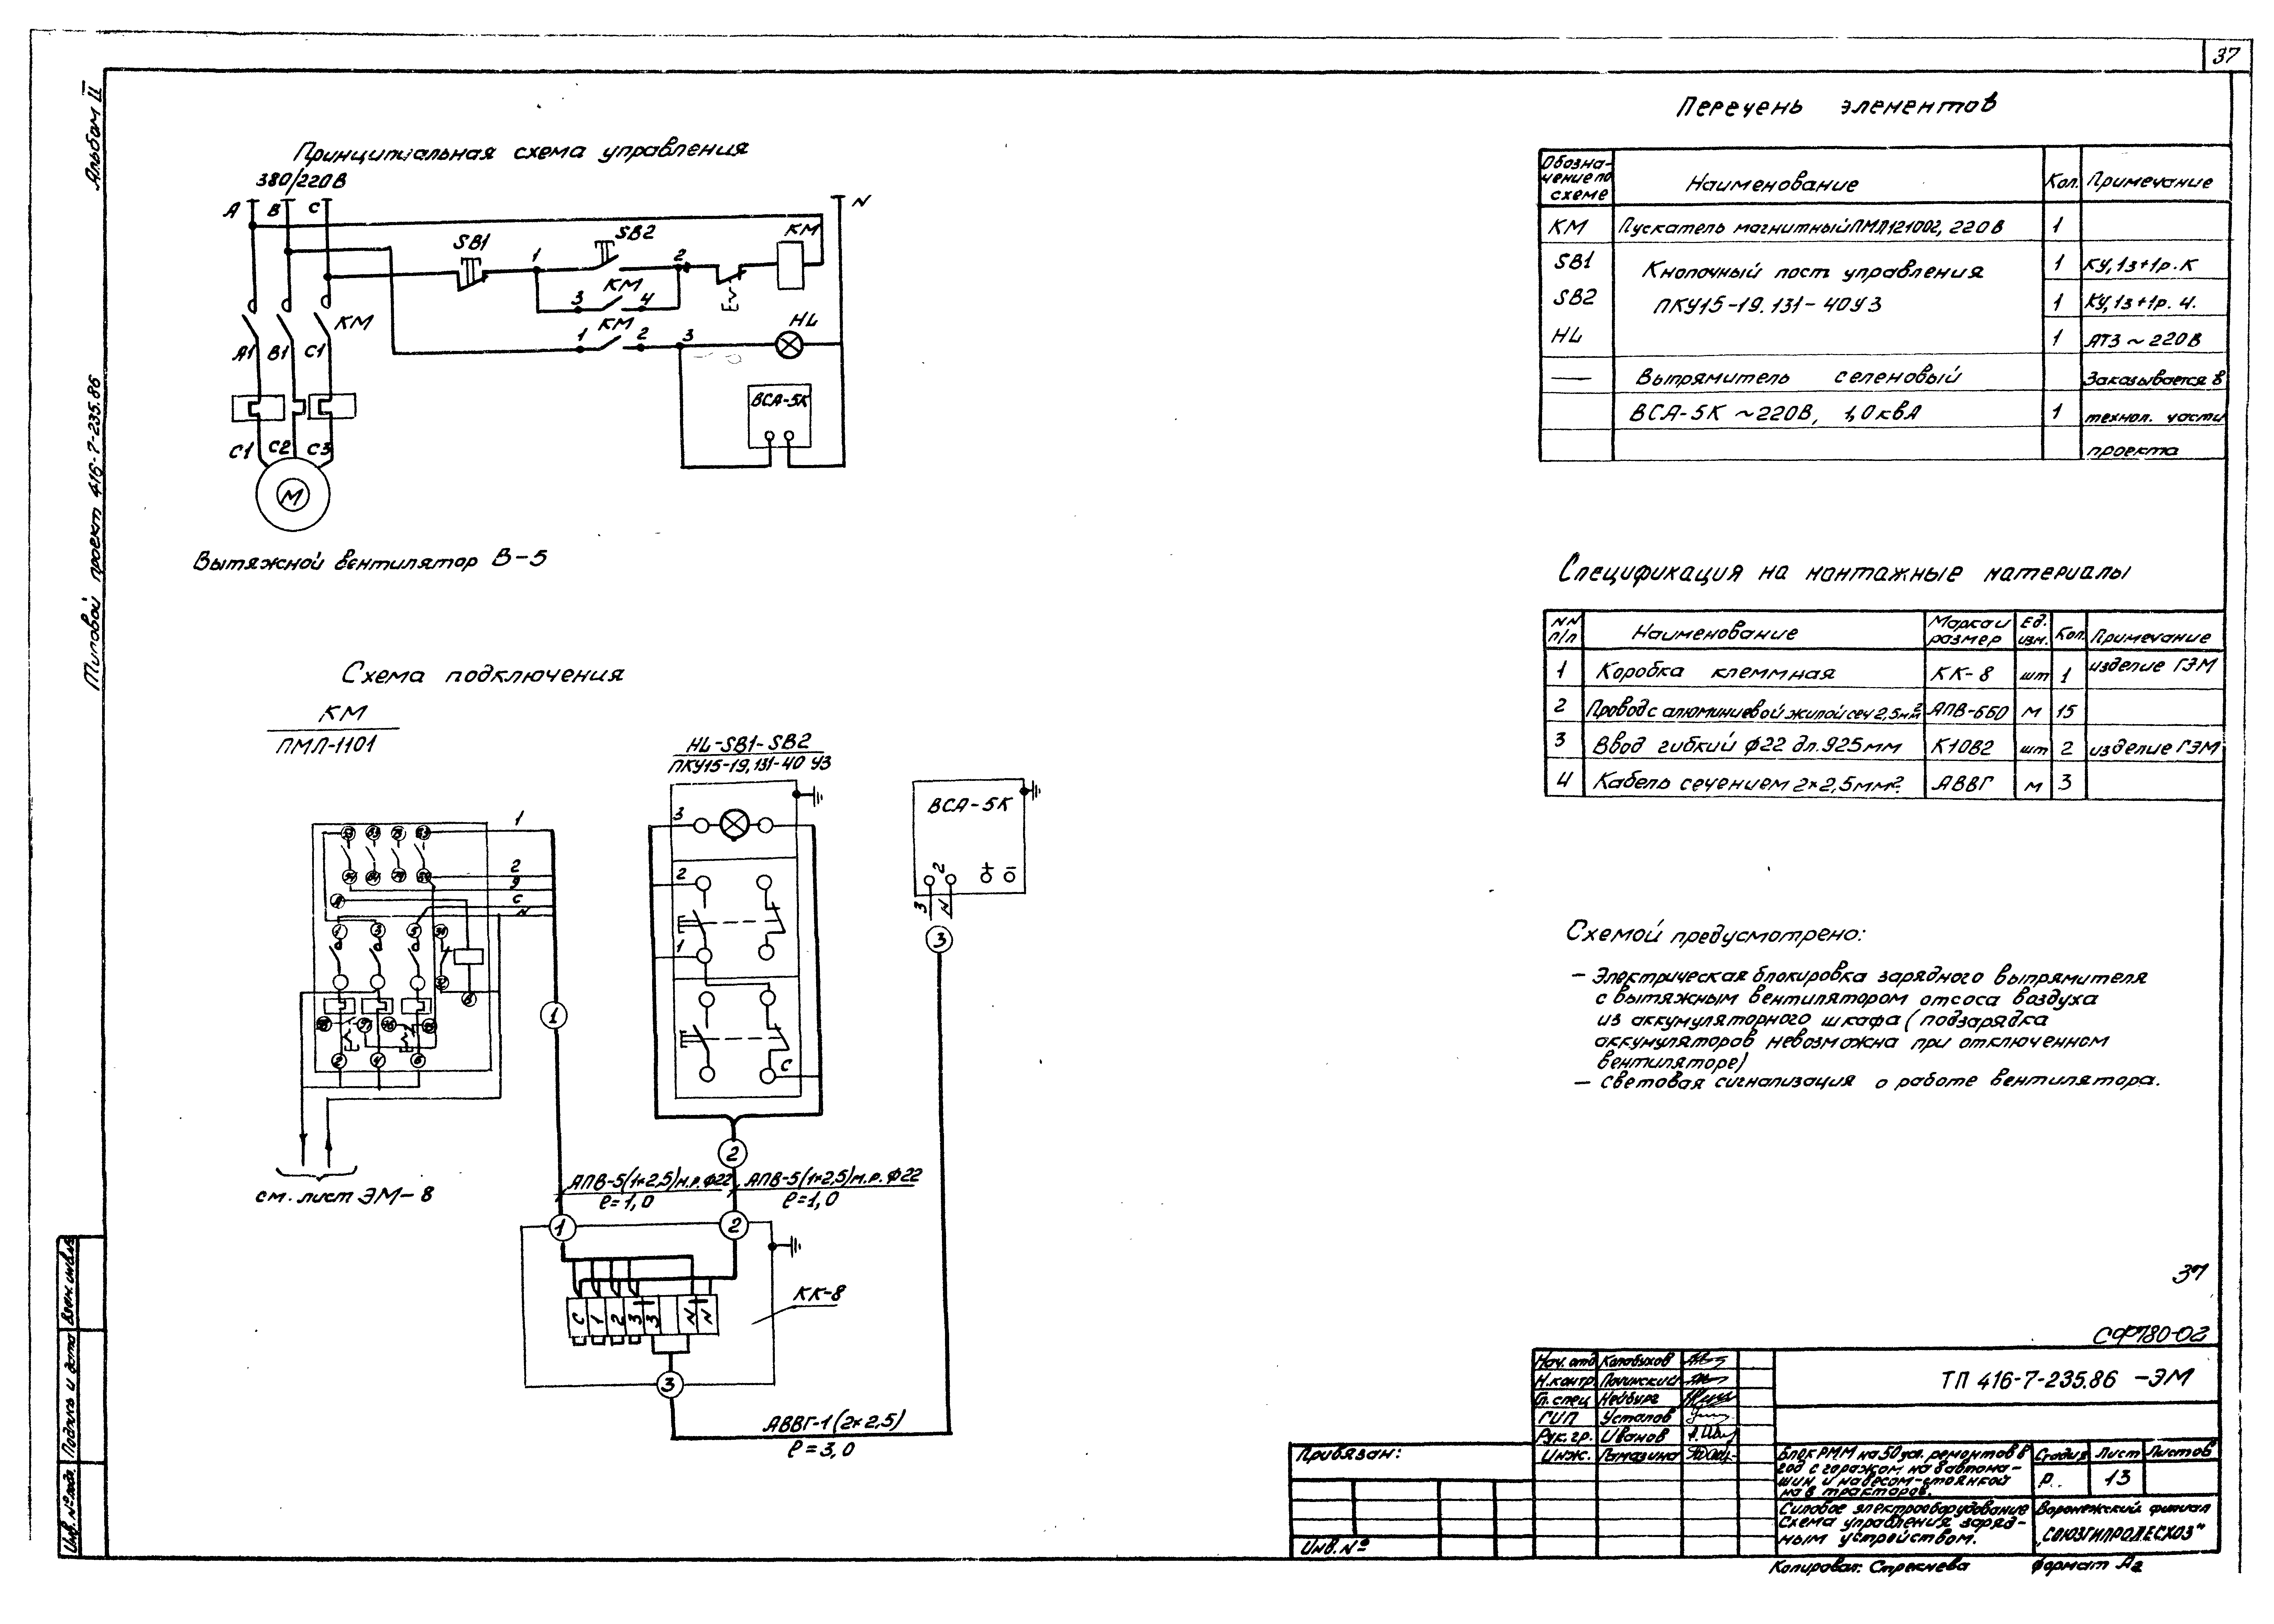 37
Альбом II
Типовой проект 416-7-235.86
Принципиальная схема управления
380/220В
A B C N
SB1 SB2 KM
1 2
KM
3 4
KM
KM
1 2 3
HL
A1 B1 C1
ВСА-5К
C1 C2 C3
М
Вытяжной вентилятор В-5
Перечень элементов
Обозна-
чение по
схеме
Наименование
Кол.
Примечание
KM Пускатель магнитный ПМЛ121002, 220В 1
SB1 Кнопочный пост управления 1 КУ,1з+1р.К
SB2 ПКУ15-19.131-40У3 1 КУ,1з+1р.Ч.
HL 1 АТЗ ~ 220В
— Выпрямитель селеновый Заказывается в
ВСА-5К ~220В, 1,0кВА 1 технол. части
проекта
Спецификация на монтажные материалы
NN п/п
Наименование
Марка и размер
Ед. изм.
Кол.
Примечание
1 Коробка клеммная КК-8 шт 1 изделие ГЭМ
2 Провод с алюминиевой жилой сеч 2,5мм² АПВ-660 м 15
3 Ввод гибкий ф22 дл.925мм К1082 шт 2 изделие ГЭМ
4 Кабель сечением 2×2,5мм². АВВГ м 3
Схемой предусмотрено:
— Электрическая блокировка зарядного выпрямителя
с вытяжным вентилятором отсоса воздуха
из аккумуляторного шкафа (подзарядка
аккумуляторов невозможна при отключенном
вентиляторе)
— Световая сигнализация о работе вентилятора.
Схема подключения
КМ
ПМЛ-1101
HL-SB1-SB2
ПКУ15-19,131-40 У3
ВСА-5К
1
2
9
C
N
3
2
1
C
2
+ −
3 N
3
1
2
см. лист ЭМ-8
АПВ-5(1×2,5)м.р.ф22
ℓ=1,0
АПВ-5(1×2,5)м.р.ф22
ℓ=1,0
1 2
КК-8
C 1 2 3 3 N N
3
АВВГ-1(2×2,5)
ℓ=3,0
37
СФ780-02
Нач. отд Колабухов
Н.контр. Починский
Гл. спец Нейбург
ГИП Усталов
Рук. гр. Иванов
Инж. Памазина
ТП 416-7-235.86 -ЭМ
Блок РММ на 50 усл. ремонтов в
год с гаражом на 8 автома-
шин и навесом-стоянкой
на 8 тракторов.
Стадия Лист Листов
Р. 13
Силовое электрооборудование
Схема управления заряд-
ным устройством.
Воронежский филиал
„СОЮЗГИПРОЛЕСХОЗ"
Привязан:
Инв. №
Копировал: Стрекнева
Формат А2
Взам. инв. №
Подпись и дата
Инв. № подл.